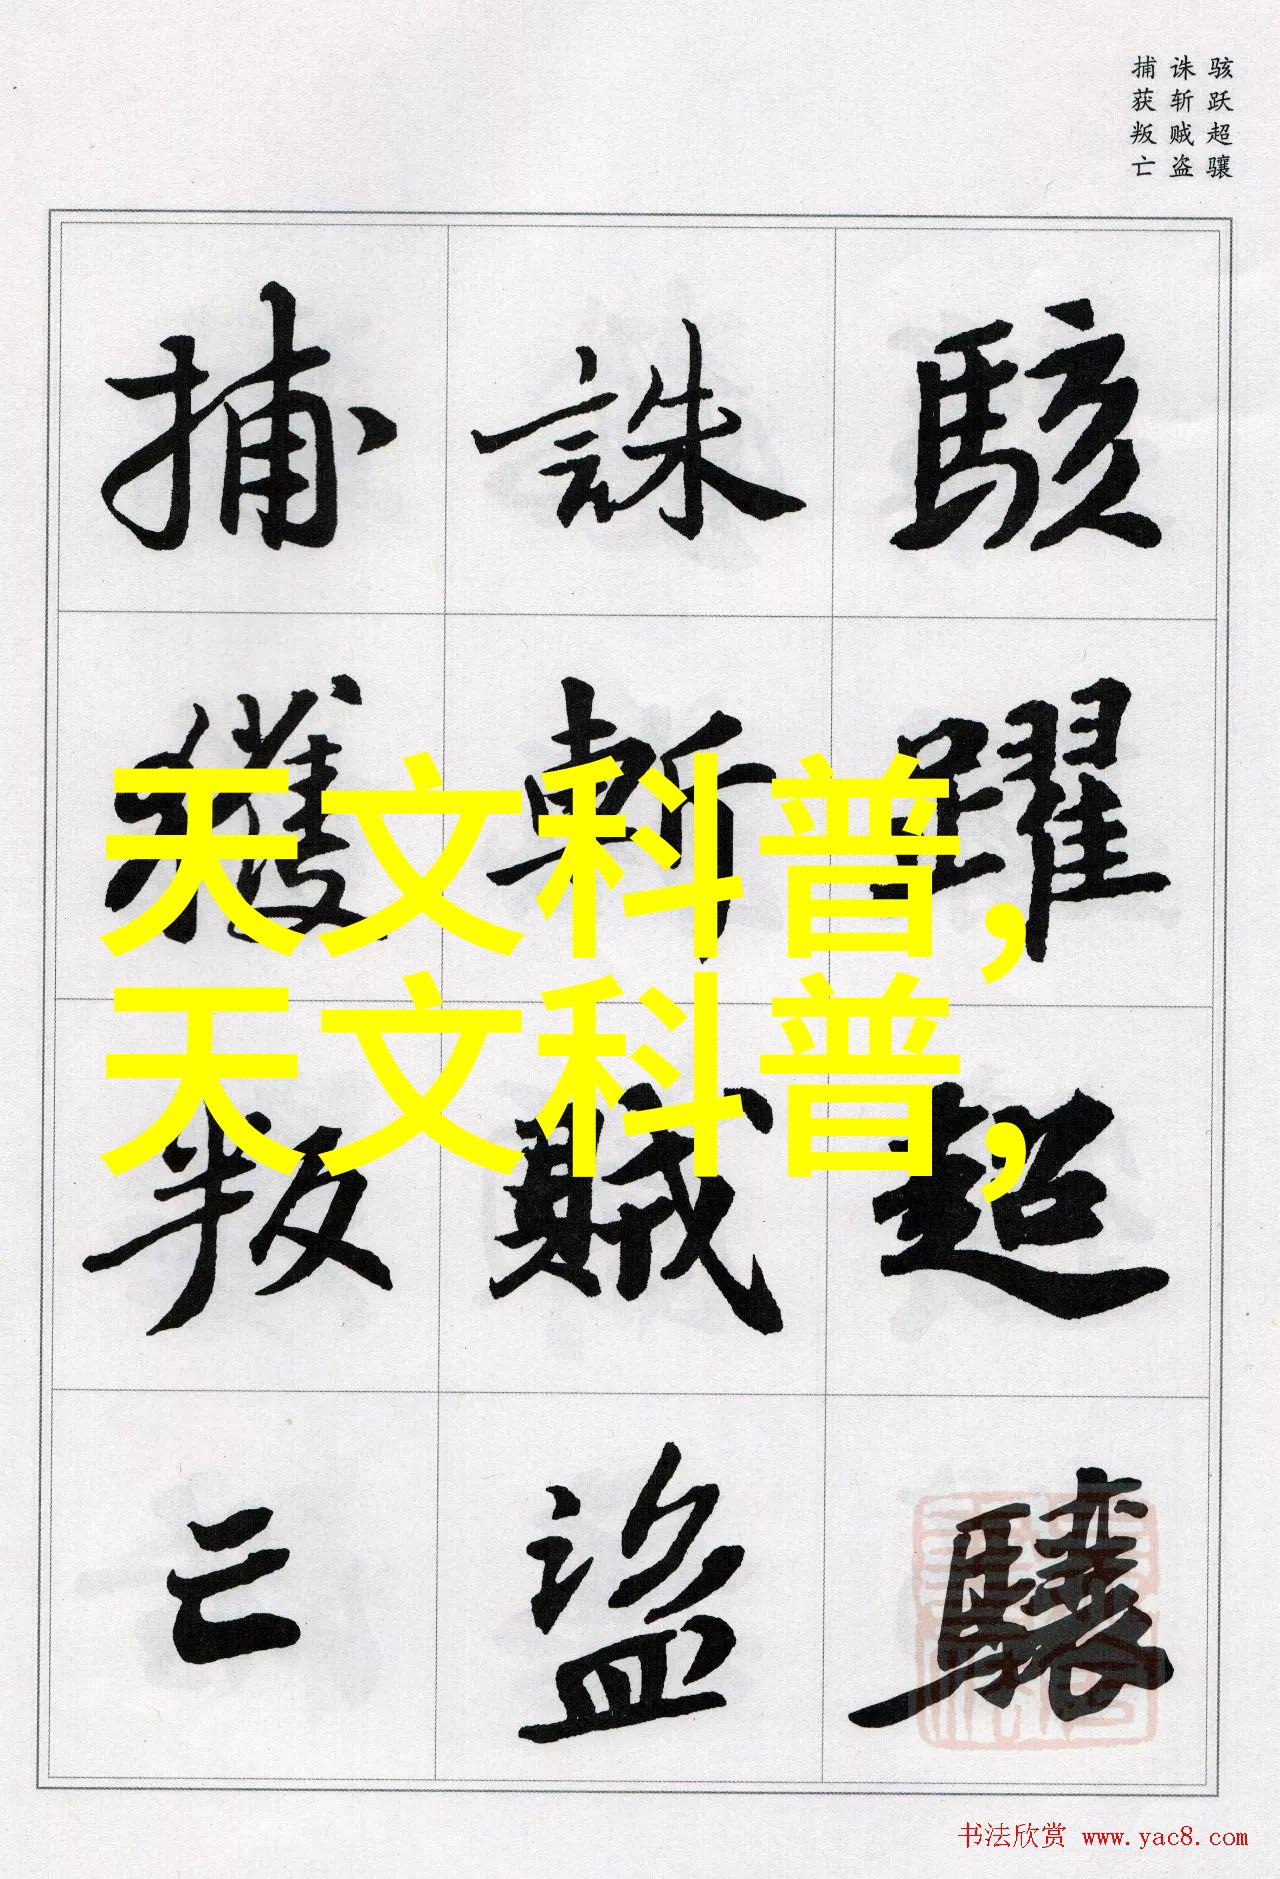 骇跃超骧
诛斩贼盗
捕获叛亡
駭躍超驤
誅斬賊盜
捕獲叛亡
天文科普，
天文科普，
书法欣赏 www.yac8.com